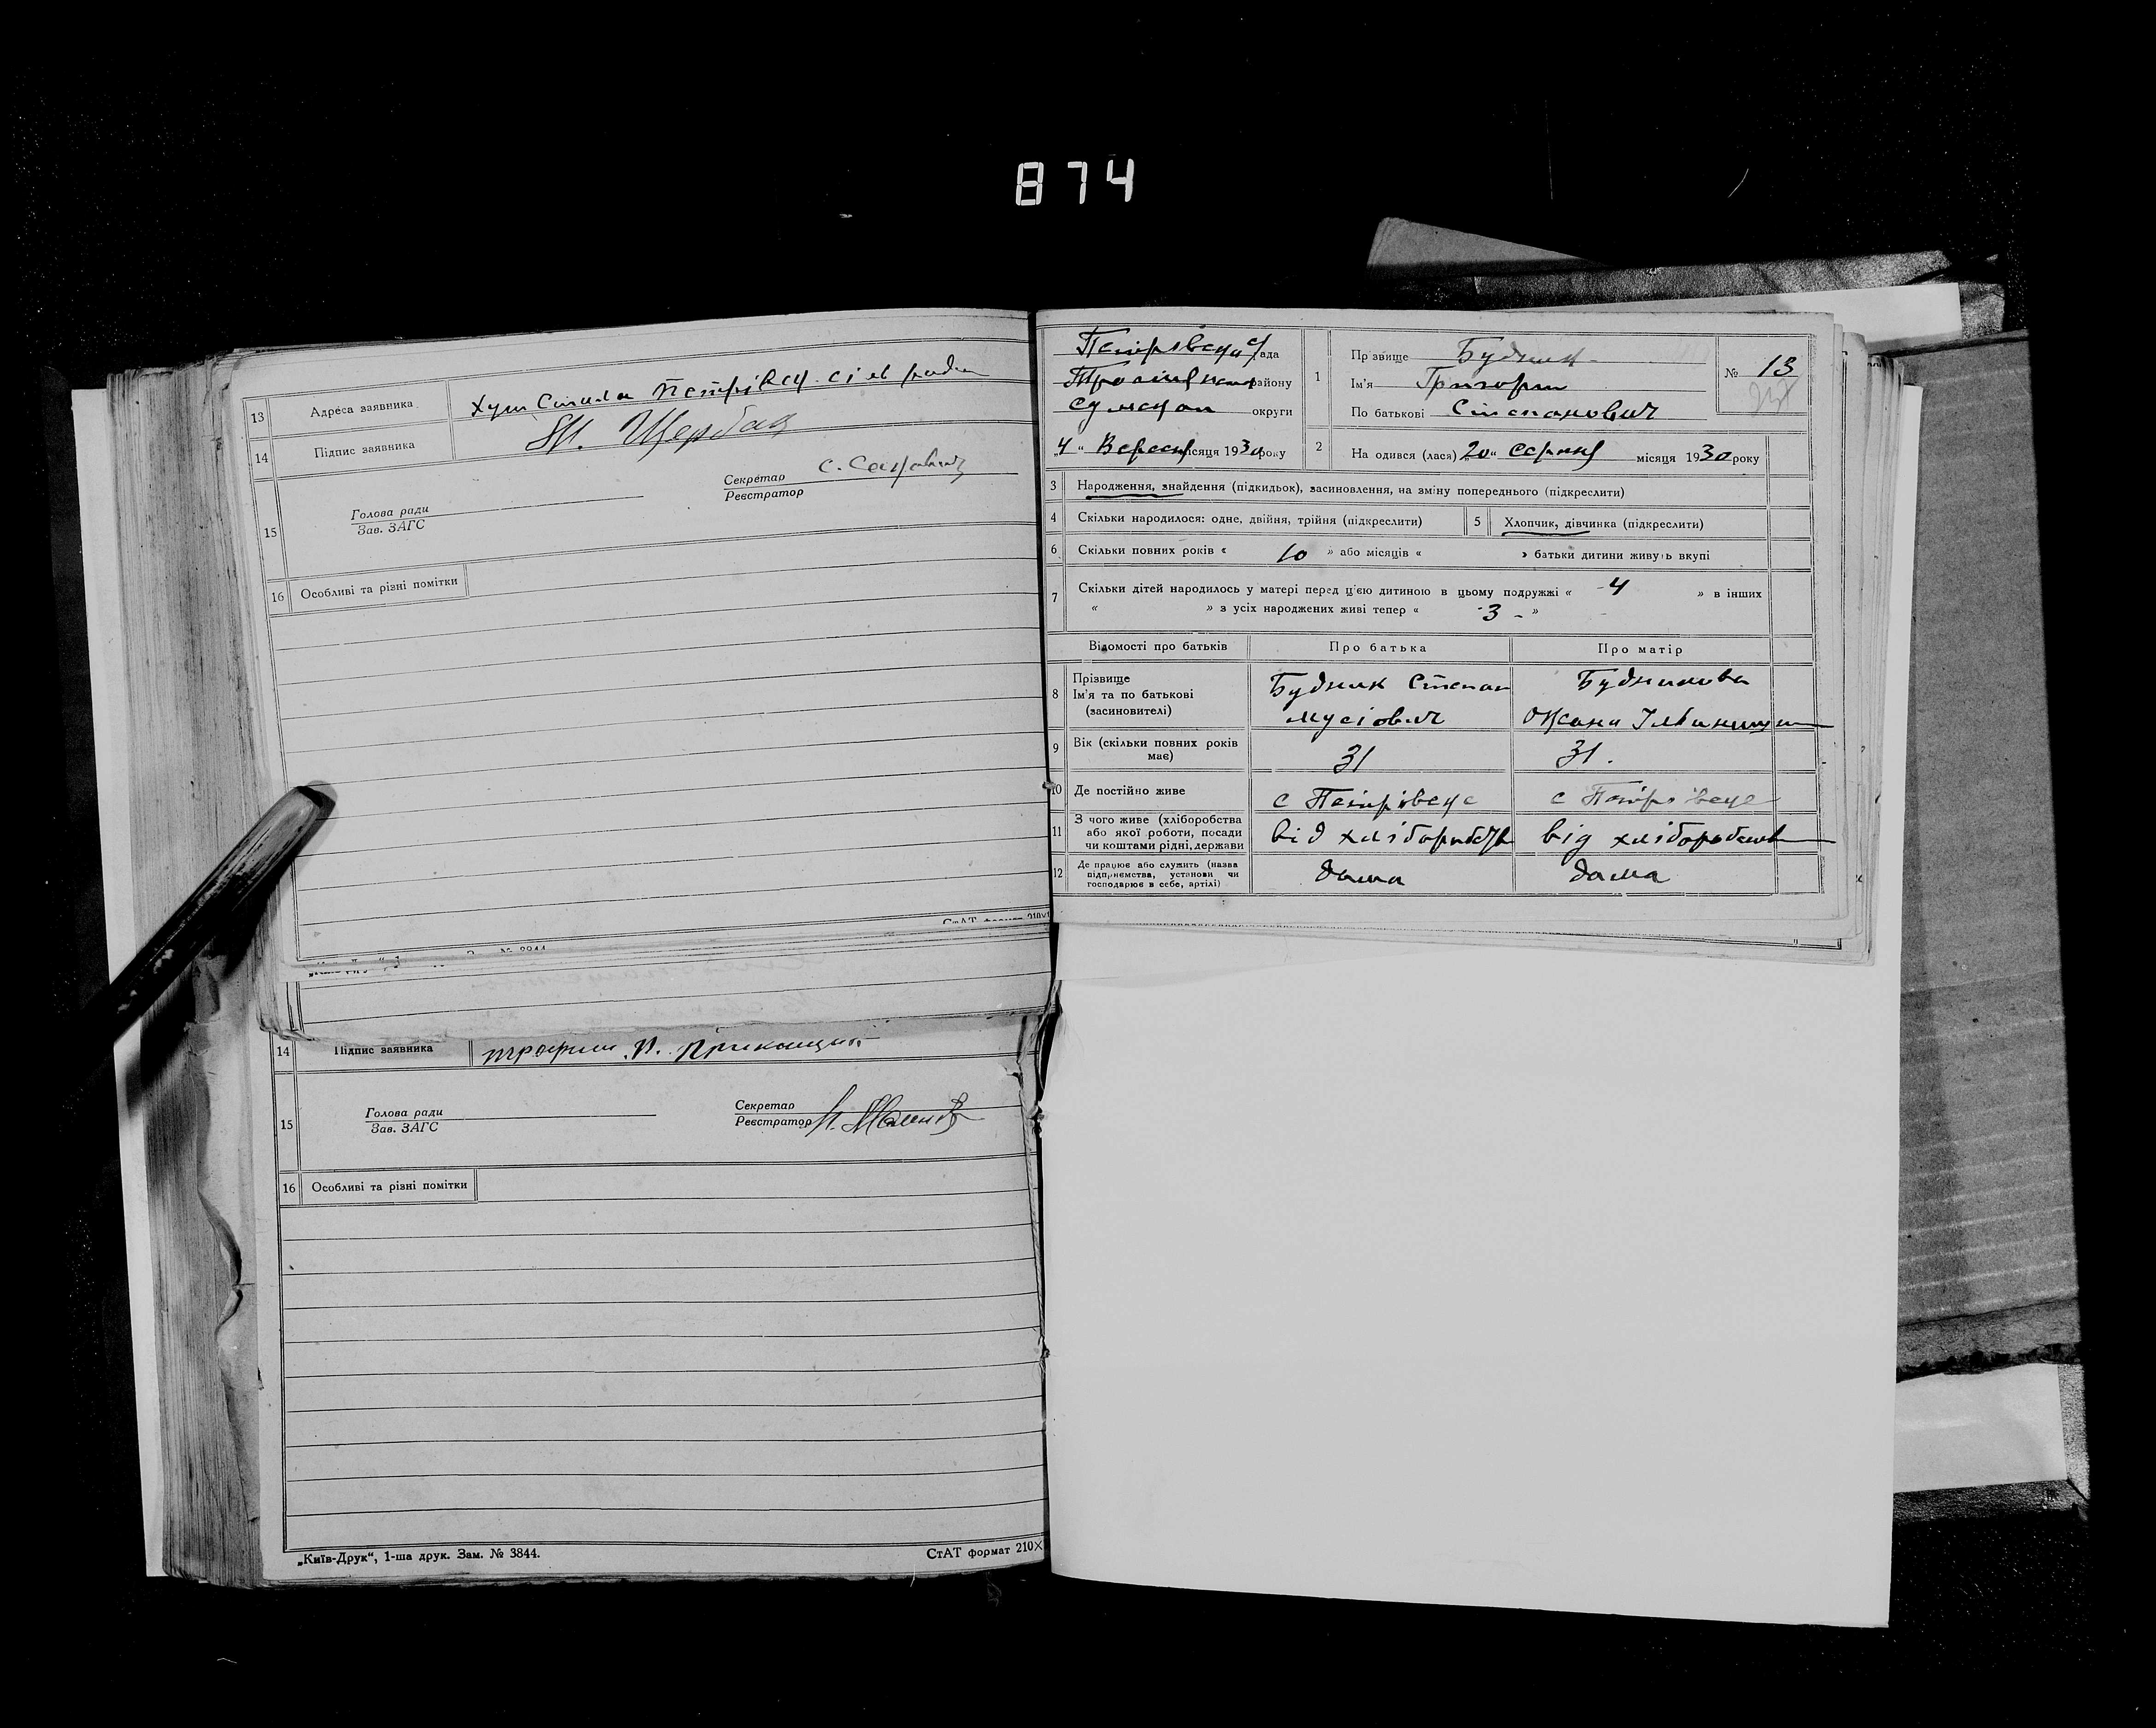 874
13 Адреса заявника Хут Петрівсц. сіль ради
14 Підпис заявника Щербак
15 Голова ради Секретар
Зав. ЗАГС Реєстратор
16 Особливі та різні помітки
14 Підпис заявника
15 Голова ради Секретар
Зав. ЗАГС Реєстратор
16 Особливі та різні помітки
„Київ-Друк“, 1-ша друк. Зам. № 3844. СтАТ формат 210×
Петрівська с/рада
району
Сумской округи
„4“ Вересня місяця 1930 року
1 Прізвище Будник
Ім'я Григорий
По батькові Степанович
№ 13
2 На одився (лася) „20“ Серпня місяця 1930 року
3 Народження, знайдення (підкидьок), засиновлення, на зміну попереднього (підкреслити)
4 Скільки народилося: одне, двійня, трійня (підкреслити) 5 Хлопчик, дівчинка (підкреслити)
6 Скільки повних років « 10 » або місяців « » батьки дитини живуть вкупі
7 Скільки дітей народилось у матері перед ц'єю дитиною в цьому подружжі « 4 » в інших
« » з усіх народжених живі тепер « 3 »
Відомості про батьків Про батька Про матір
8 Прізвище
Ім'я та по батькові
(засиновителі)
Будник Степан
Мусіович
Будникова
9 Вік (скільки повних років
має)
31 31.
10 Де постійно живе с Петрівськ с Петрівське
11 З чого живе (хліборобства
або якої роботи, посади
чи коштами рідні, держави
від хліборобств від хліборобств
12 Де працює або служить (назва
підприємства, установи чи
господарює в себе, артілі)
дома дома